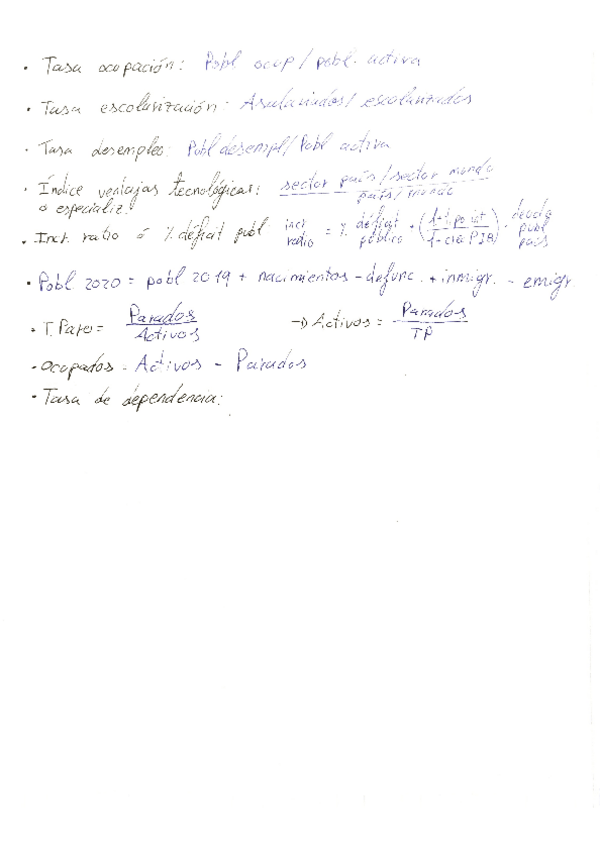 · Tasa ocupación: Pobl ocup / pobl. activa
· Tasa escolarización: Asalariados / escolarizados
· Tasa desempleo: Pobl desempl / Pobl activa
· Índice ventajas tecnológicas: sector país / sector mundo
ó especializ. país / mundo
· Incr. ratio ó % déficit públ. incr ratio = % déficit público + ( ) · deuda públ país
· Pobl 2020 = pobl 2019 + nacimientos - defunc. + inmigr. - emigr
· T. Paro = Parados / Activos → Activos = Parados / TP
· Ocupados = Activos - Parados
· Tasa de dependencia: